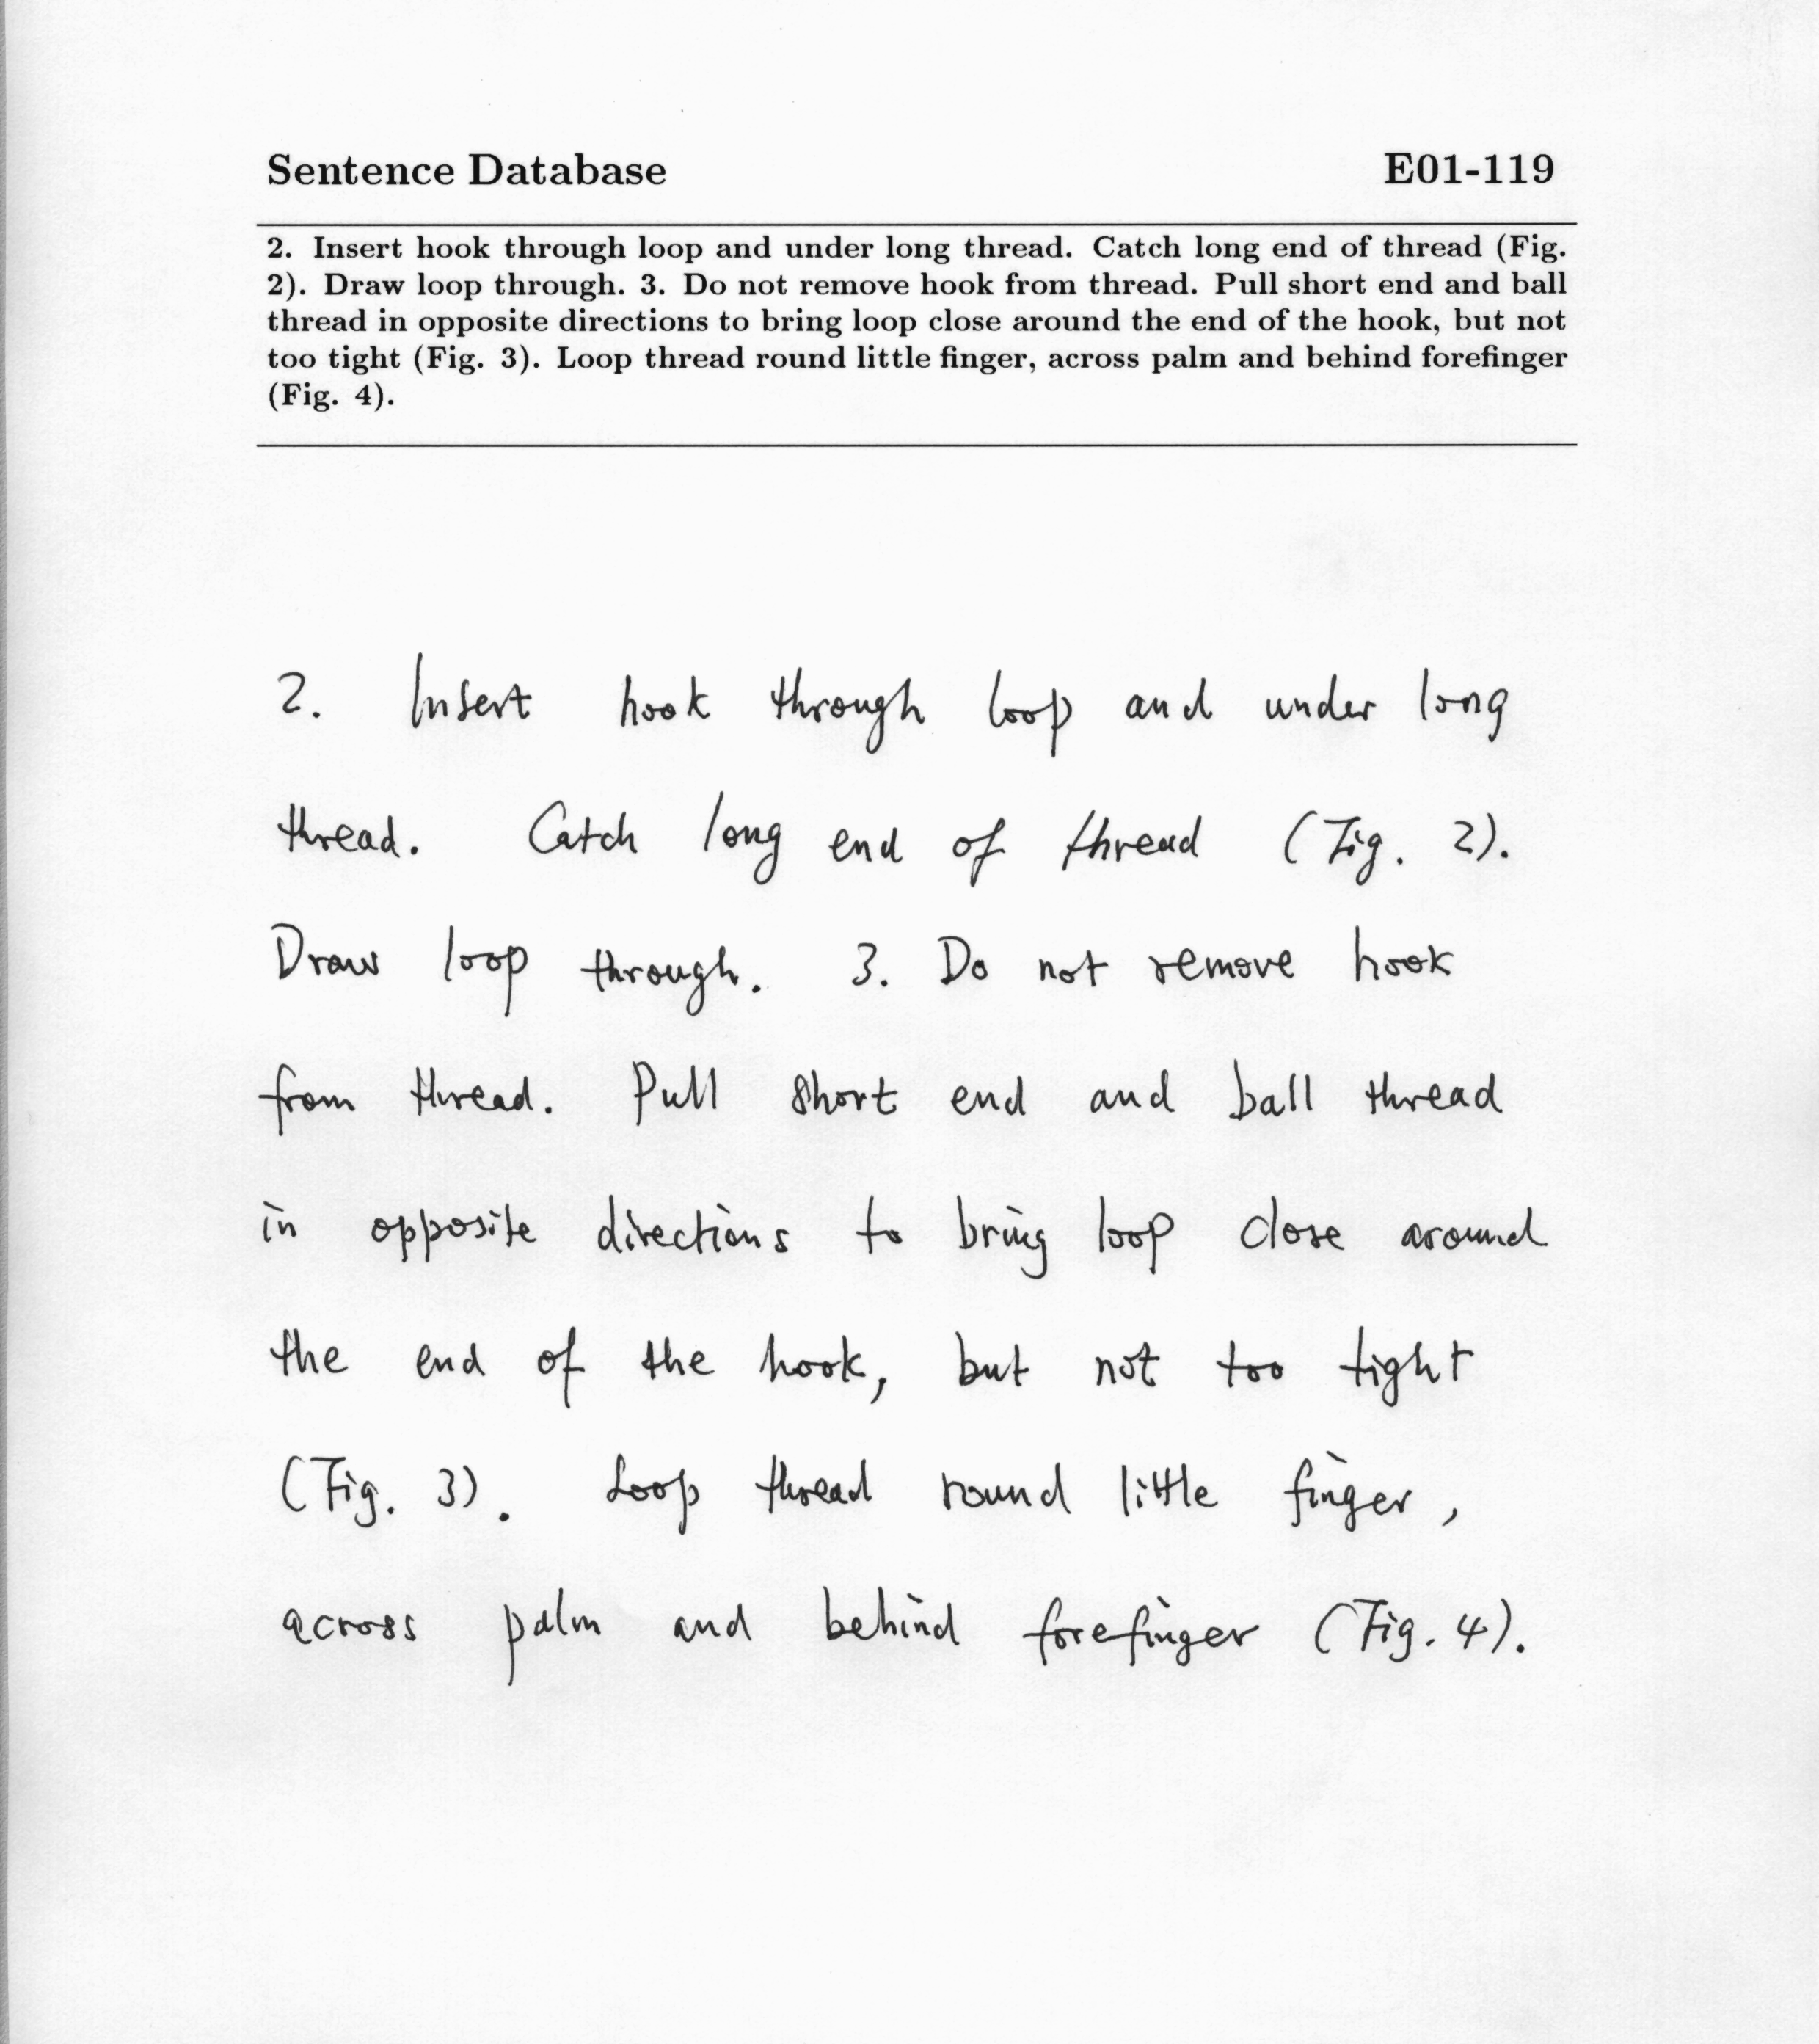 Sentence Database E01-119
2. Insert hook through loop and under long thread. Catch long end of thread (Fig.
2). Draw loop through. 3. Do not remove hook from thread. Pull short end and ball
thread in opposite directions to bring loop close around the end of the hook, but not
too tight (Fig. 3). Loop thread round little finger, across palm and behind forefinger
(Fig. 4).
2. Insert hook through loop and under long
thread. Catch long end of thread (Fig. 2).
Draw loop through. 3. Do not remove hook
from thread. Pull short end and ball thread
in opposite directions to bring loop close around
the end of the hook, but not too tight
(Fig. 3). Loop thread round little finger,
across palm and behind forefinger (Fig. 4).